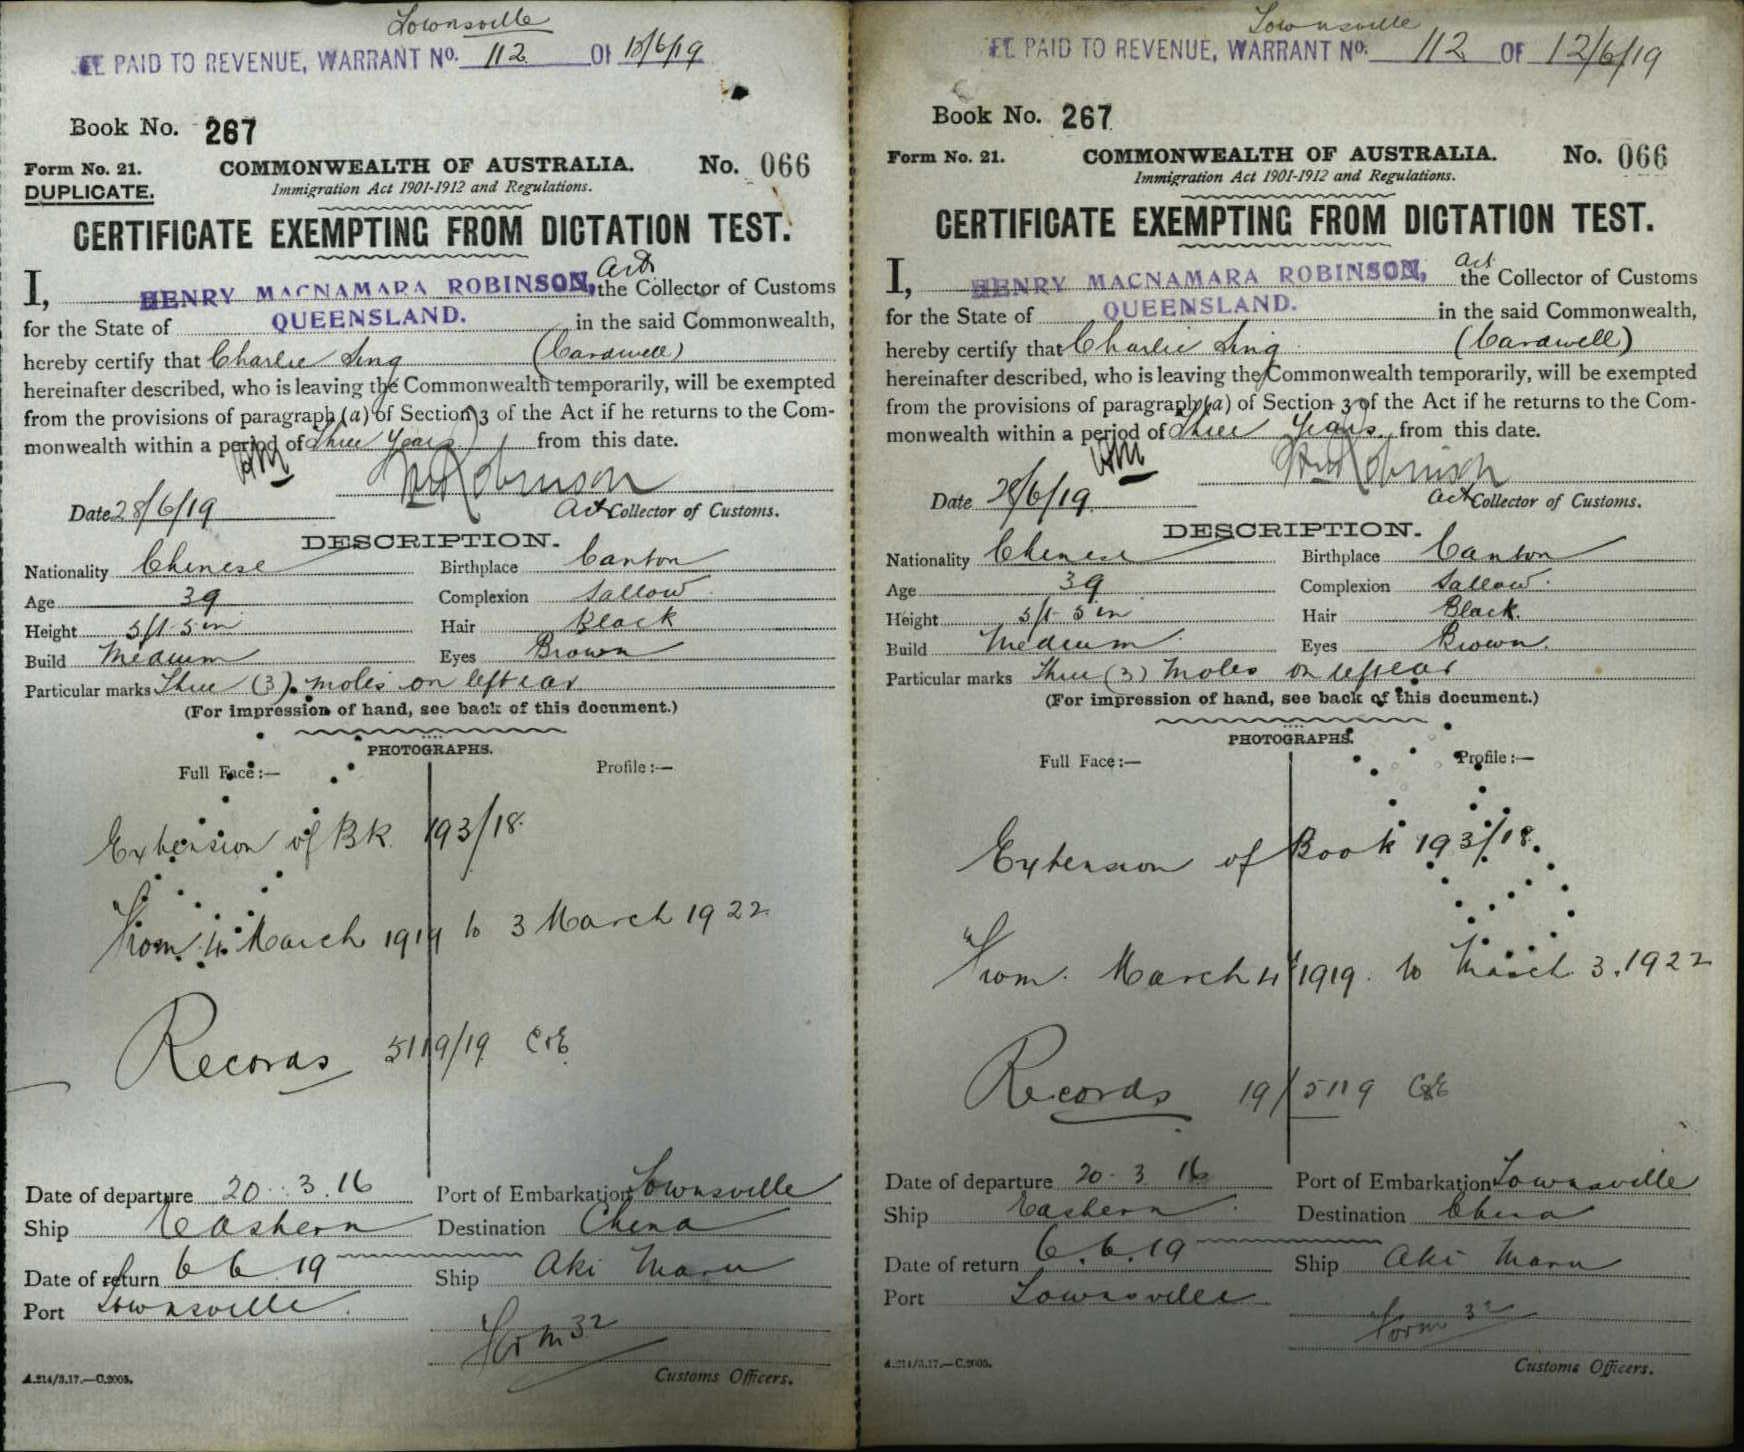 Townsville
FEE PAID TO REVENUE, WARRANT No. 112 OF 12/6/19
Book No. 267
Form No. 21. COMMONWEALTH OF AUSTRALIA. No. 066
DUPLICATE. Immigration Act 1901-1912 and Regulations.
CERTIFICATE EXEMPTING FROM DICTATION TEST.
I, HENRY MACNAMARA ROBINSON, Act the Collector of Customs
for the State of QUEENSLAND. in the said Commonwealth,
hereby certify that Charlie Sing (Cardwell)
hereinafter described, who is leaving the Commonwealth temporarily, will be exempted
from the provisions of paragraph (a) of Section 3 of the Act if he returns to the Com-
monwealth within a period of three years from this date.
HMRobinson
Date 28/6/19 Act Collector of Customs.
DESCRIPTION.
Nationality Chinese Birthplace Canton
Age 39 Complexion Sallow
Height 5ft 5in Hair Black
Build Medium Eyes Brown
Particular marks Three (3) moles on left ear
(For impression of hand, see back of this document.)
PHOTOGRAPHS.
Full Face:— Profile:—
Extension of BK 193/18.
From 4 March 1919 to 3 March 1922
Records 5119/19 C&E
Date of departure 20.3.16 Port of Embarkation Townsville
Ship Eastern Destination China
Date of return 6 6 19 Ship Aki Maru
Port Townsville
Form 32
A.214/3.17.—C.2005. Customs Officers.
Townsville
FEE PAID TO REVENUE, WARRANT No. 112 OF 12/6/19
Book No. 267
Form No. 21. COMMONWEALTH OF AUSTRALIA. No. 066
Immigration Act 1901-1912 and Regulations.
CERTIFICATE EXEMPTING FROM DICTATION TEST.
I, HENRY MACNAMARA ROBINSON, Act the Collector of Customs
for the State of QUEENSLAND. in the said Commonwealth,
hereby certify that Charlie Sing (Cardwell)
hereinafter described, who is leaving the Commonwealth temporarily, will be exempted
from the provisions of paragraph (a) of Section 3 of the Act if he returns to the Com-
monwealth within a period of three years from this date.
HMRobinson
Date 28/6/19 Act Collector of Customs.
DESCRIPTION.
Nationality Chinese Birthplace Canton
Age 39 Complexion Sallow.
Height 5ft 5in Hair Black.
Build Medium Eyes Brown.
Particular marks Three (3) moles on left ear
(For impression of hand, see back of this document.)
PHOTOGRAPHS.
Full Face:— Profile:—
Extension of Book 193/18.
From March 4 1919. to March 3.1922
Records 19/5119 C&E
Date of departure 20.3 16 Port of Embarkation Townsville
Ship Eastern. Destination China
Date of return 6.6.19 Ship Aki Maru
Port Townsville
Form 32
A.214/3.17.—C.2005. Customs Officers.